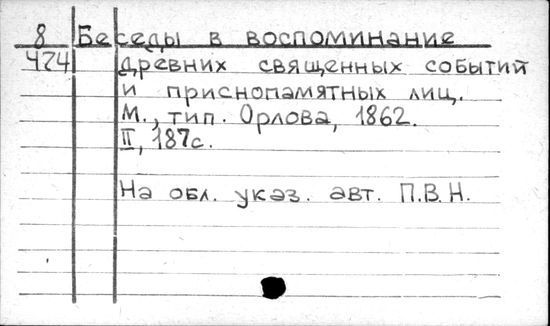 8 Беседы в воспоминание
474 древних священных событий
и приснопамятных лиц.
М., тип. Орлова, 1862.
II, 187с.
На обл. указ. авт. П.В.Н.